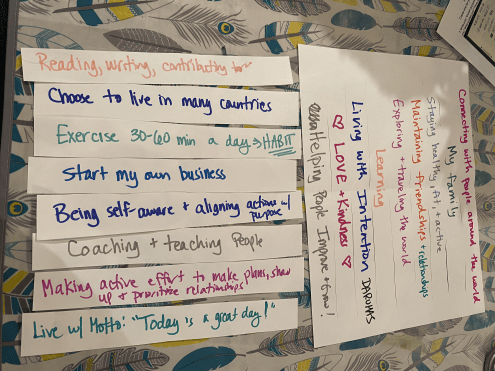 Reading, writing, contributing
Choose to live in many countries
Exercise 30-60 min a day → HABIT
Start my own business
Being self-aware + aligning actions w/
purpose
Coaching + teaching People
Making active effort to make plans, show
up + prioritize relationships
Live w/ Motto: "Today is a great day!"
Connecting with people around the world
My family
Staying healthy, fit, + active
Maintaining friendships + relationships
Exploring + traveling the world
Learning
Living with Intention DARUMAS
♡ LOVE + Kindness ♡
Helping People Improve + Grow!